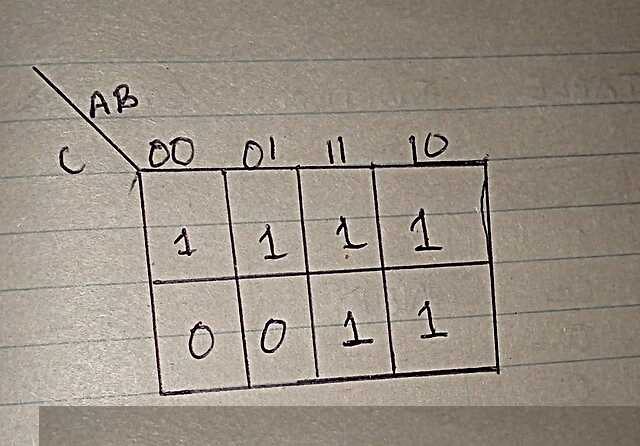 AB
C 00 01 11 10
1 1 1 1
0 0 1 1